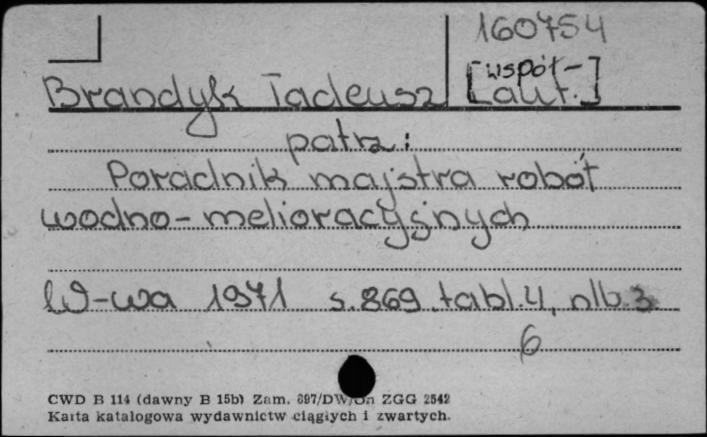 160754
Brandyk Tadeusz [współ-
aut.]
patrz:
Poradnik majstra robót
wodno-melioracyjnych
W-wa 1971 s.869, tabl.4, nlb.3
6
CWD B 114 (dawny B 15b) Zam. 697/DW/ ZGG 2542
Karta katalogowa wydawnictw ciągłych i zwartych.